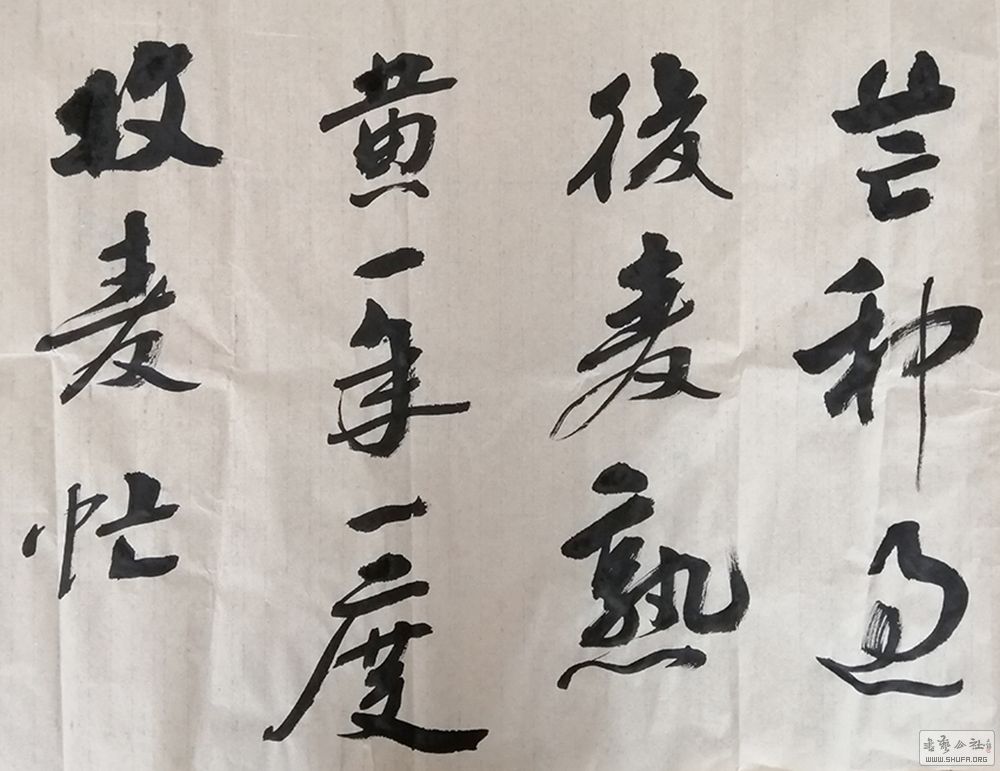 芒种过
後麦熟
黄一年一度
收麦忙
书艺公社
WWW.SHUFA.ORG